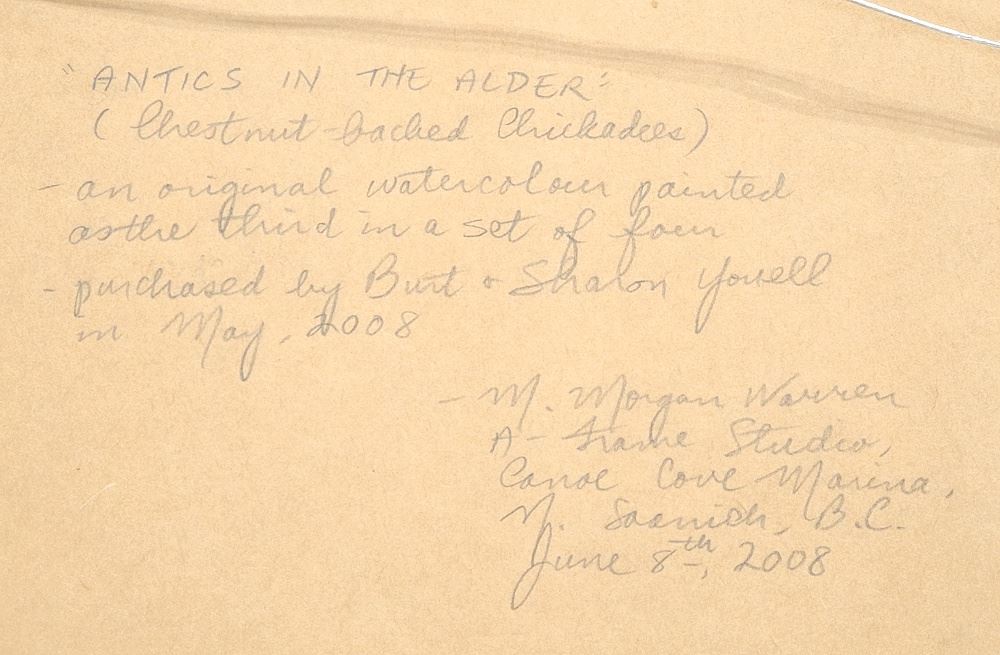 "ANTICS IN THE ALDER"
(Chestnut-backed Chickadees)
- an original watercolour painted
as the third in a set of four
- purchased by Burt & Sharon Yowell
in May, 2008
- M. Morgan Warren
A-Frame Studio,
Canoe Cove Marina,
N. Saanich, B.C.
June 8th, 2008